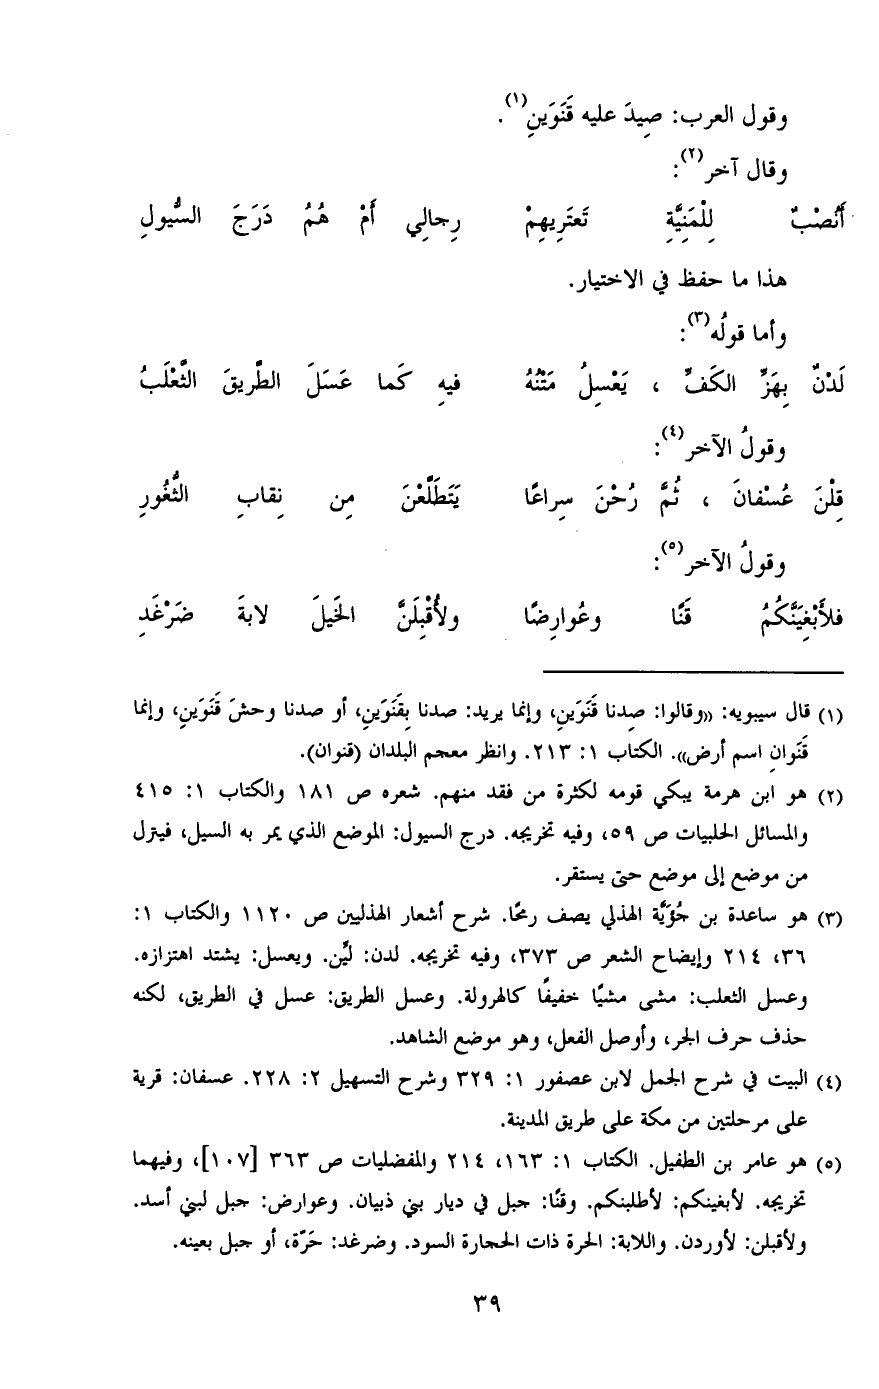 وقول العرب: صِيدَ عليه قَنَوَينِ(١).
وقال آخر(٢):
أَنُصْبٌ لِلْمَنِيَّةِ تَعتَرِيهِمْ رِجالِي أَمْ هُمُ دَرَجَ السُّيولِ
هذا ما حفظ في الاختيار.
وأما قولُه(٣):
لَدْنٌ بِهَزِّ الكَفِّ ، يَعْسِلُ مَتْنُهُ فيهِ كَما عَسَلَ الطَّريقَ الثَّعْلَبُ
وقولُ الآخر(٤):
قِلْنَ عُسْفانَ ، ثُمَّ رُحْنَ سِراعًا يَتَطَلَّعْنَ مِن نِقابِ الثُّغُورِ
وقولُ الآخر(٥):
فلأَبْغِيَنَّكُمُ قَنًا وعُوارِضًا ولأُقْبِلَنَّ الخَيلَ لابةَ ضَرْغَدِ
(١) قال سيبويه: «وقالوا: صِدنا قَنَوَينِ، وإنما يريد: صدنا بِقَنَوَينِ، أو صدنا وحشَ قَنَوَينِ، وإنما
قَنَوانِ اسم أرض». الكتاب ١: ٢١٣. وانظر معجم البلدان (قنوان).
(٢) هو ابن هرمة يبكي قومه لكثرة من فقد منهم. شعره ص ١٨١ والكتاب ١: ٤١٥
والمسائل الحلبيات ص ٥٩، وفيه تخريجه. درج السيول: الموضع الذي يمر به السيل، فينزل
من موضع إلى موضع حتى يستقر.
(٣) هو ساعدة بن جُؤيَّة الهذلي يصف رمحًا. شرح أشعار الهذليين ص ١١٢٠ والكتاب ١:
٣٦، ٢١٤ وإيضاح الشعر ص ٣٧٣، وفيه تخريجه. لدن: ليِّن. ويعسل: يشتد اهتزازه.
وعسل الثعلب: مشى مشيًا خفيفًا كالهرولة. وعسل الطريق: عسل في الطريق، لكنه
حذف حرف الجر، وأوصل الفعل، وهو موضع الشاهد.
(٤) البيت في شرح الجمل لابن عصفور ١: ٣٢٩ وشرح التسهيل ٢: ٢٢٨. عسفان: قرية
على مرحلتين من مكة على طريق المدينة.
(٥) هو عامر بن الطفيل. الكتاب ١: ١٦٣، ٢١٤ والمفضليات ص ٣٦٣ [١٠٧]، وفيهما
تخريجه. لأبغينكم: لأطلبنكم. وقنًا: جبل في ديار بني ذبيان. وعوارض: جبل لبني أسد.
ولأقبلن: لأوردن. واللابة: الحرة ذات الحجارة السود. وضرغد: حَرّة، أو جبل بعينه.
٣٩